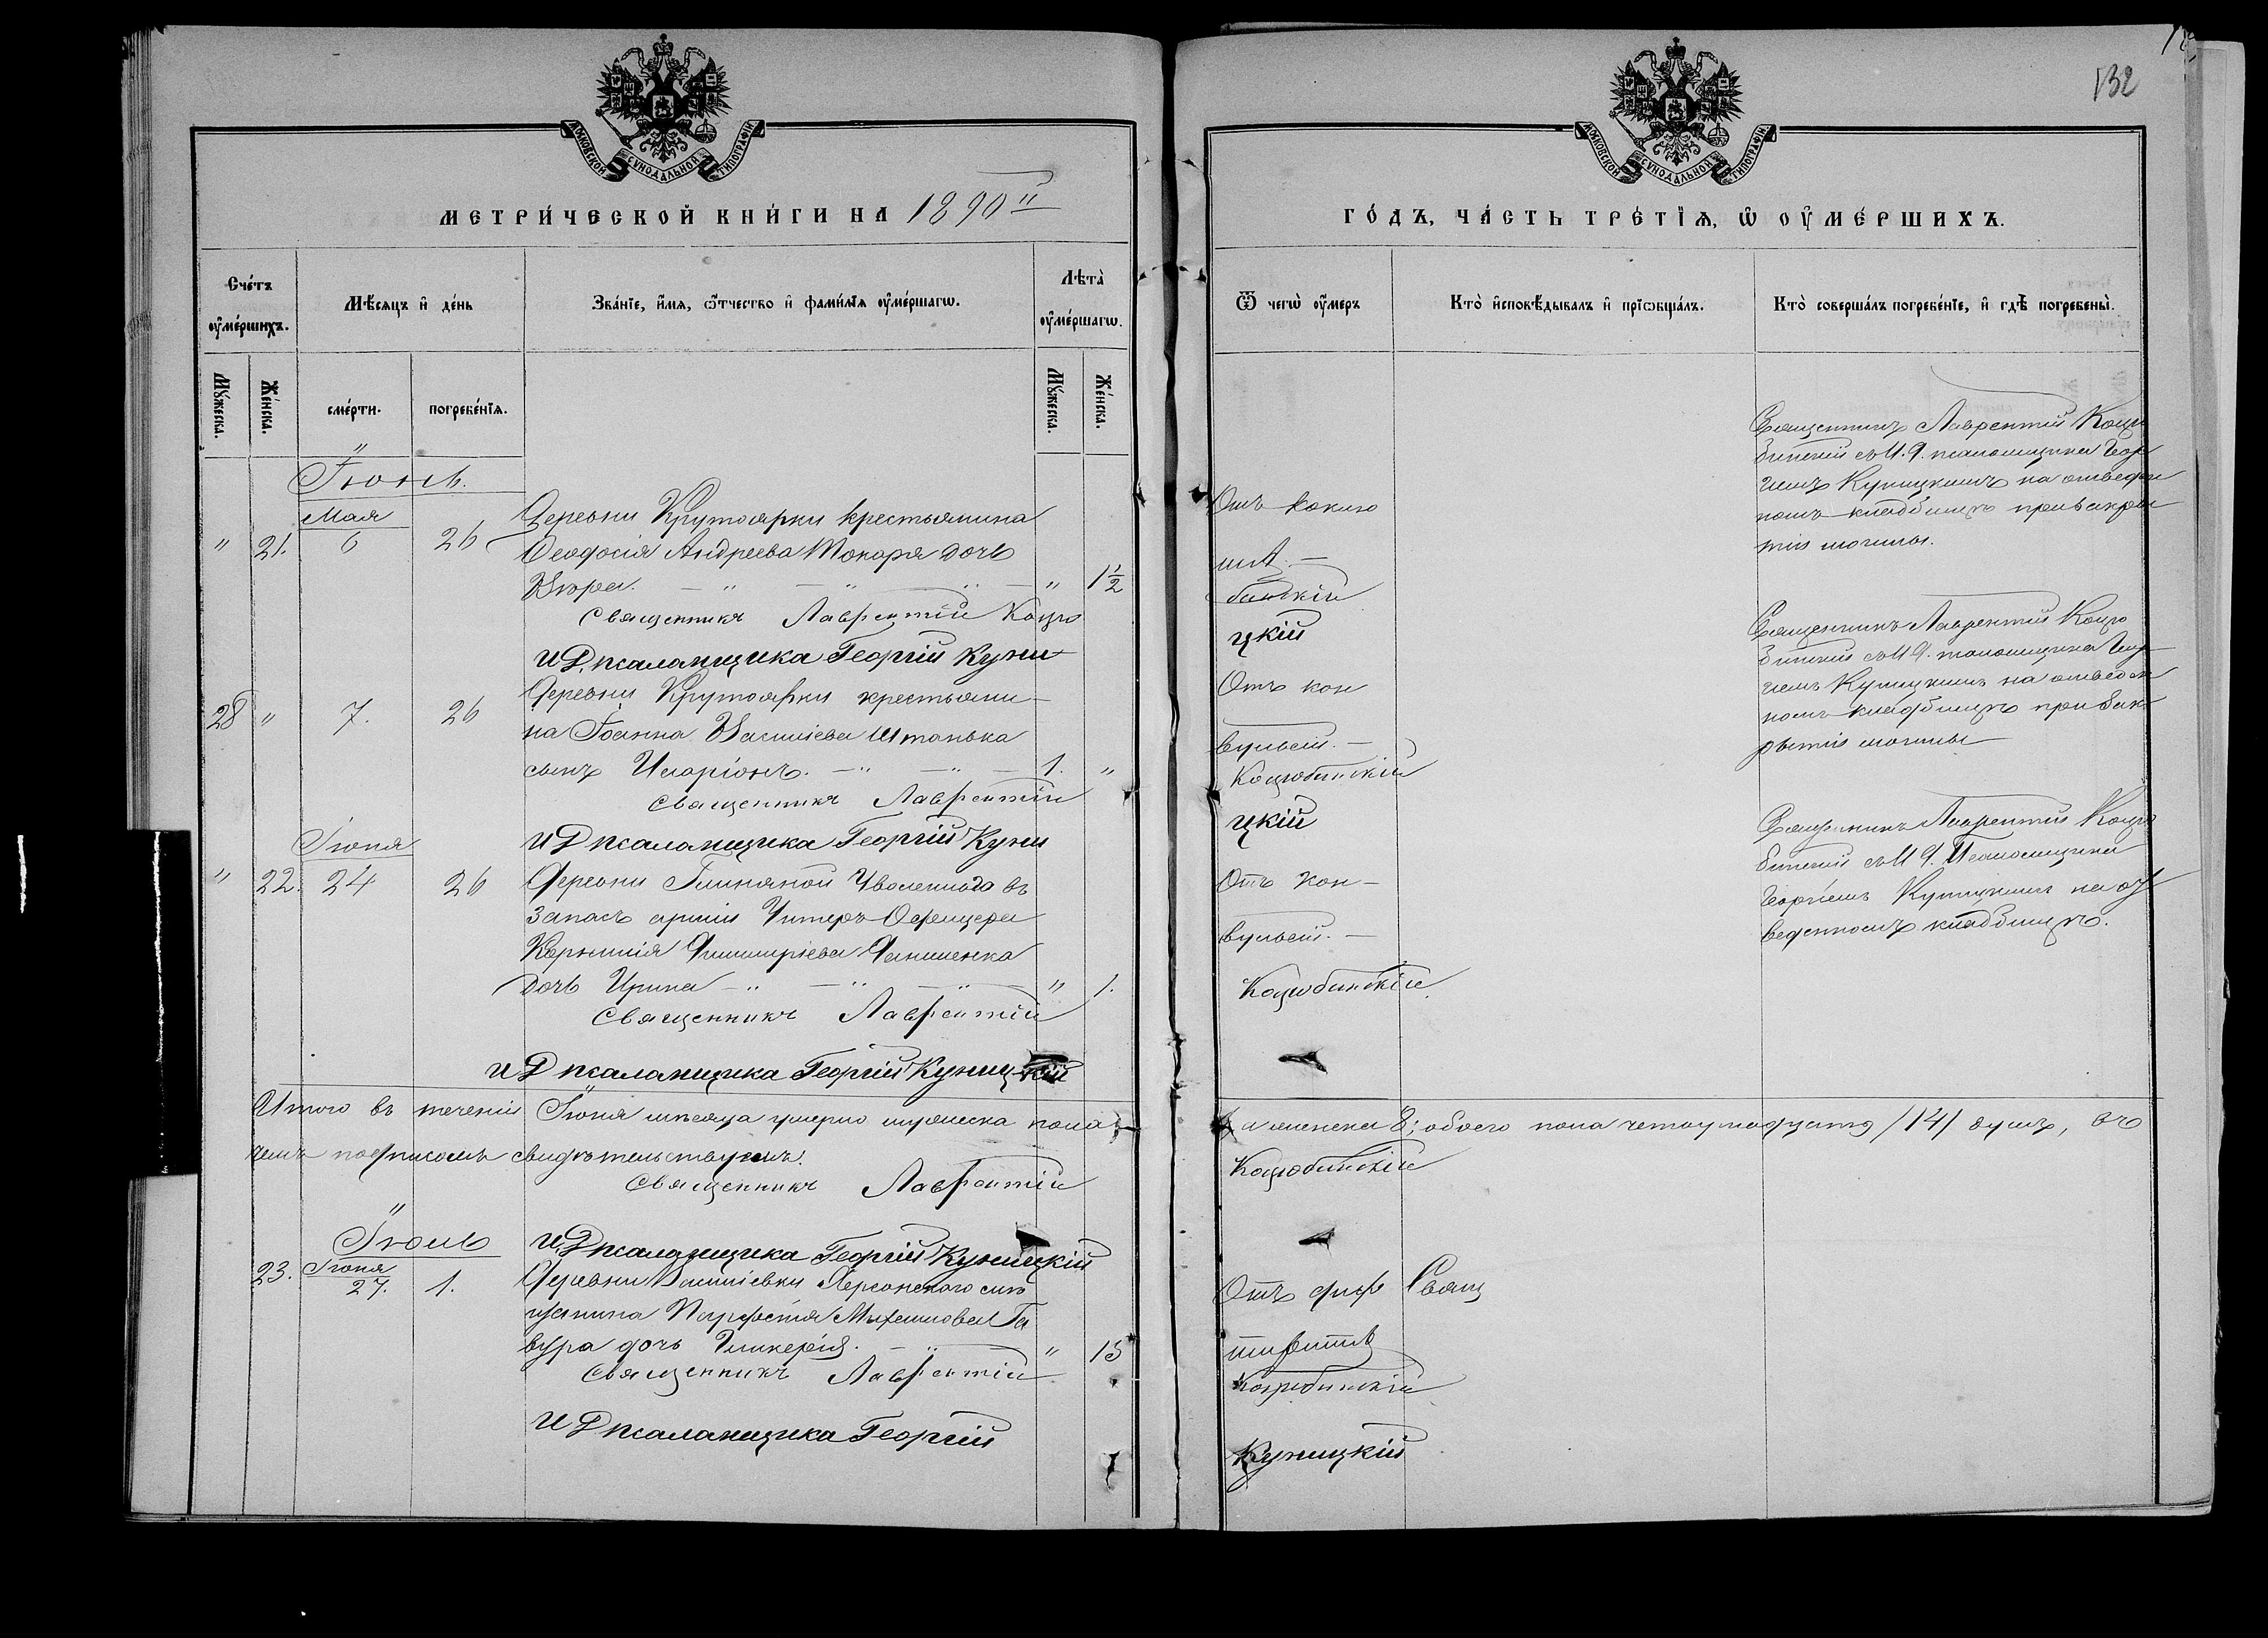 132
МОСКОВСКОЙ СѴНОДАЛЬНОЙ ТИПОГРАФІИ
МЕТРИ́ЧЕСКОЙ КНИ́ГИ НА 1890й
Сче́тъ оу҆ме́ршихъ.
Мѣ́сяцъ и҆ де́нь
Зва́нїе, и҆́мя, ѻ҆́тчество и҆ фами́лїя оу҆ме́ршагѡ.
Лѣта̀ оу҆ме́ршагѡ.
Мꙋ́жеска.
Же́нска.
сме́рти.
погребе́нїя.
Мꙋ́жеска.
Же́нска.
Іюнь.
Мая
" 21. 6 26
Деревни Крутоярки крестьянина
Ѳеодосія Андреева Токаря дочь
Вѣра. " 1½
Священникъ Лаврентій Коцю
И Д. псаломщика Георгій Куни
28 " 7. 26
Деревни Крутоярки крестьяни-
на Іоанна Василіева Штанька
сынъ Иларіонъ. 1. "
Священникъ Лаврентій
И Д псаломщика Георгій Куни
Іюня
" 22. 24 26
Деревни Глиняной Уволеннаго въ
запасъ арміи Унтеръ-Офицера
Димитріева
дочь Ирина " 1.
Священникъ Лаврентій
И Д псаломщика Георгій Куницкій
Итого въ теченіи Іюня мѣсяца умерло мужеска пола
чемъ подписомъ свидѣтельствуемъ.
Священникъ Лаврентій
Іюль
И Д псаломщика Георгій Куницкій
23. Іюня 27. 1.
Деревни Василіевки Херсонского мѣ
щанина Парфенія Михаилова Га
вура дочь Гликерія. " 15
Священникъ Лаврентій
И Д псаломщика Георгій
МОСКОВСКОЙ СѴНОДАЛЬНОЙ ТИПОГРАФІИ
ГО́ДЪ, ЧА́СТЬ ТРЕ́ТЇѦ, Ѡ҆ ОУ҆МЕ́РШИХЪ.
Ѿ чегѡ̀ оу҆́меръ
Кто̀ и҆сповѣ́дывалъ и҆ прїѡбща́лъ.
Кто̀ соверша́лъ погребе́нїе, и҆ гдѣ̀ погребены̀.
Отъ коклю
ша.
бинскій
цкій
Священникъ Лаврентій Коцю
бинскій съ И. Д. псаломщика Геор
гіемъ Куницкимъ на отведен
номъ кладбищѣ при закры
тіи могилы.
Отъ кон
вульсій.
Коцюбинскій
цкій
Священникъ Лаврентій Коцю
бинскій съ И Д. псаломщика Геор
гіемъ Куницкимъ на отведен
номъ кладбищѣ при зак
рытіи могилы
Отъ кон-
вульсій.
Коцюбинскій
Священникъ Лаврентій Коцю
бинскій съ И Д. Псаломщика
Георгіемъ Куницкимъ на от
веденномъ кладбищѣ.
а женска 8; обоего пола четырнадцать /14/ душъ, въ
Коцюбинскій
Отъ диф
терита
Свящ
Коцюбинскій
Куницкій